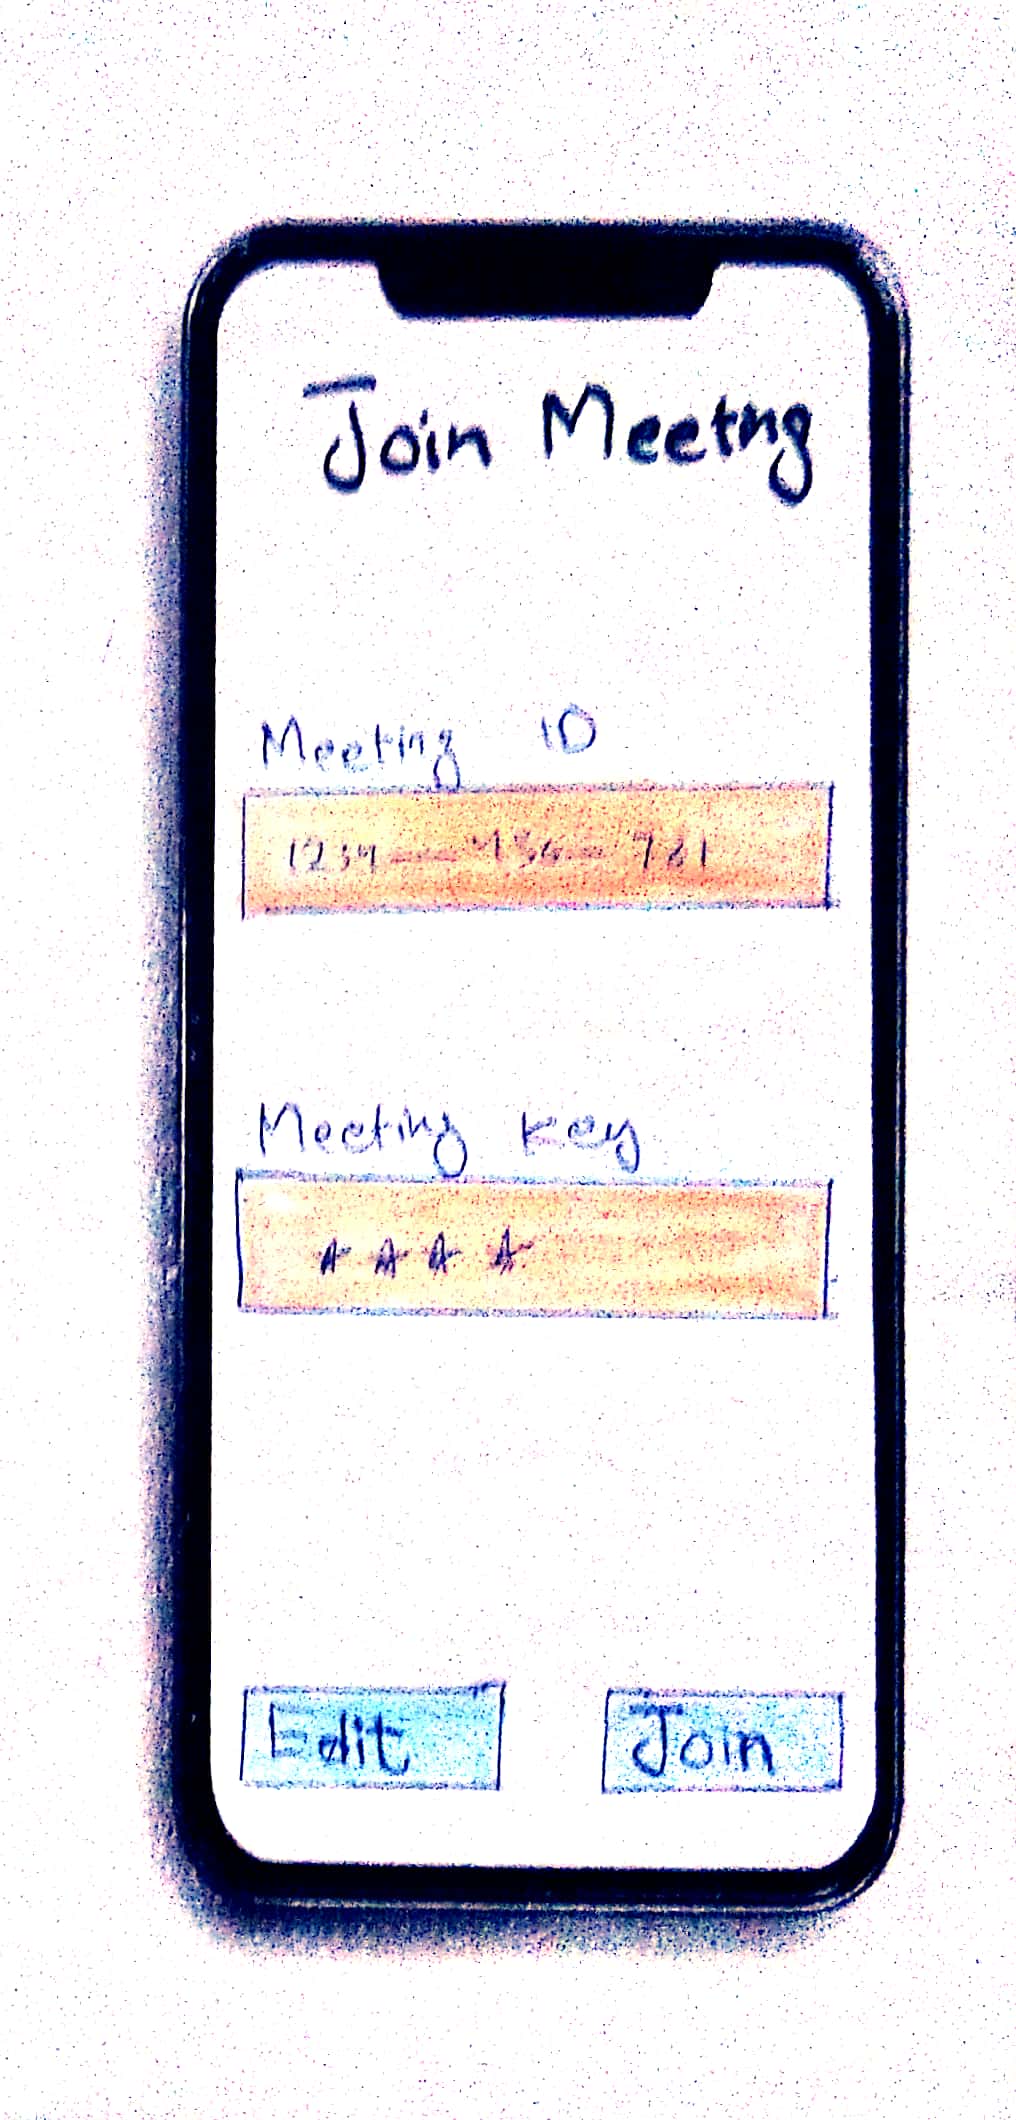 Join Meetng
Meeting ID
1234
Meeting Key
****
Edit Join